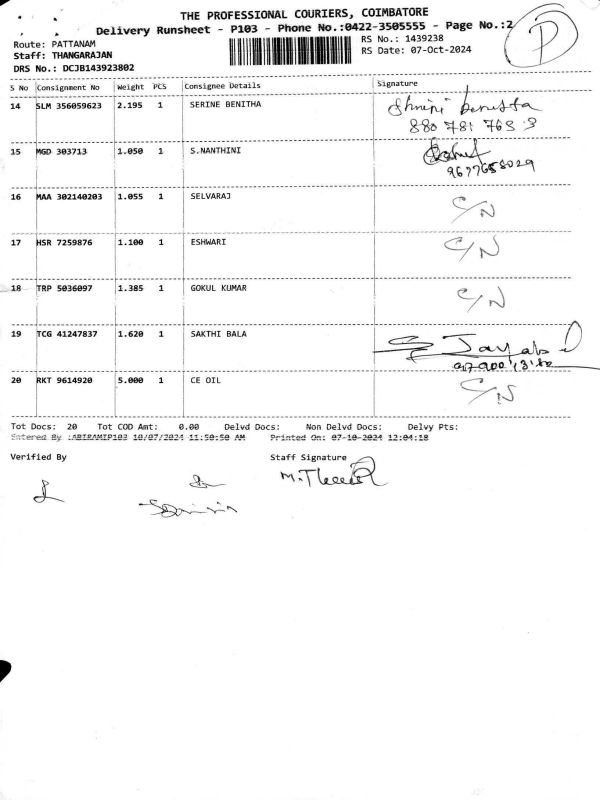 THE PROFESSIONAL COURIERS, COIMBATORE
Delivery Runsheet - P103 - Phone No.:0422-3505555 - Page No.:2
P
Route: PATTANAM
RS No.: 1439238
Staff: THANGARAJAN
RS Date: 07-Oct-2024
DRS No.: DCJB143923802
S No Consignment No Weight PCS Consignee Details Signature
14 SLM 356059623 2.195 1 SERINE BENITHA
15 MGD 303713 1.050 1 S.NANTHINI
9677658029
16 MAA 302140203 1.055 1 SELVARAJ C/N
17 HSR 7259876 1.100 1 ESHWARI C/N
18 TRP 5036097 1.385 1 GOKUL KUMAR C/N
19 TCG 41247837 1.620 1 SAKTHI BALA
20 RKT 9614920 5.000 1 CE OIL C/N
Tot Docs: 20 Tot COD Amt: 0.00 Delvd Docs: Non Delvd Docs: Delvy Pts:
Entered By :ABIRAMIP103 10/07/2024 11:50:50 AM Printed On: 07-10-2024 12:04:18
Verified By Staff Signature